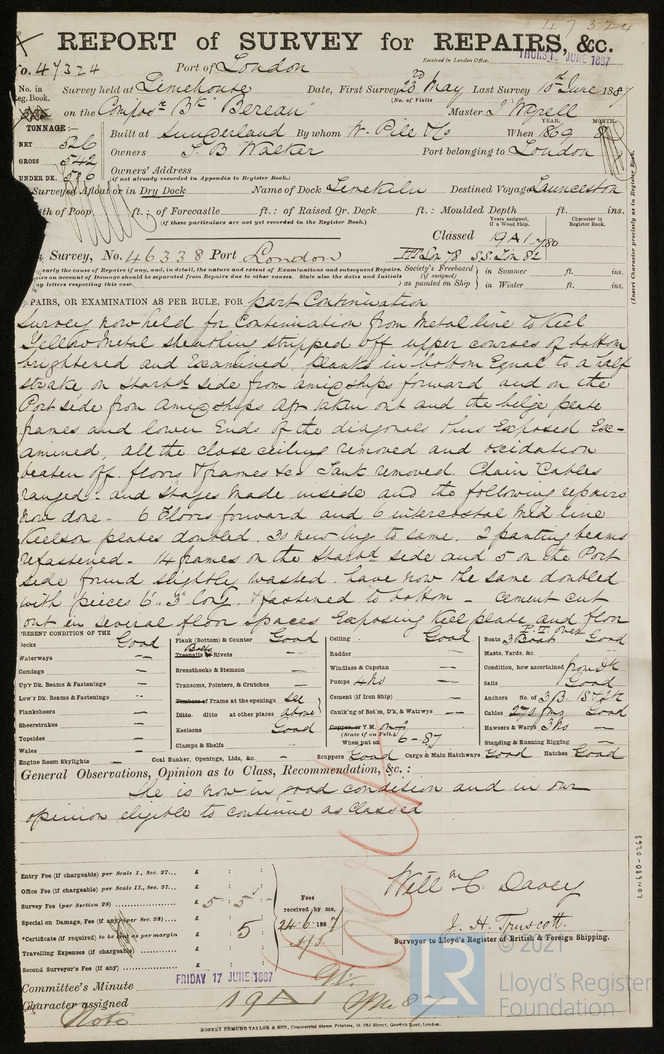 47324
REPORT of SURVEY for REPAIRS, &c.
Received in London Office. THURS 16 JUNE 1887
No. 47324 Port of London
No. in Reg. Book. Survey held at Limehouse Date, First Survey 20th May Last Survey 10th June 1887
(No. of Visits)
on the Compos. Bk "Berean" Master J Wyrell
TONNAGE:— YEAR. MONTH.
NET 526 Built at Sunderland By whom W. Pile & Co When 1869 8
GROSS 542 Owners T. B Walker Port belonging to London
UNDER DK. 506 Owners' Address
(if not already recorded in Appendix to Register Book.)
Surveyed Afloat or in Dry Dock Name of Dock Limekiln Destined Voyage Launceston
th of Poop ft. : of Forecastle ft. : of Raised Qr. Deck ft. : Moulded Depth ft. ins.
(if these particulars are not yet recorded in the Register Book.)
Years assigned, if a Wood Ship. Character in Register Book.
Classed 19 A 1 -7/80
Survey, No. 46338 Port London S.S. Lon 82
(Insert Character precisely as in Register Book.)
early the cause of Repairs if any, and, in detail, the nature and extent of Examinations and subsequent Repairs.
irs on account of Damage should be separated from Repairs due to other causes. State also the dates and Initials
ny letters respecting this case.
Society's Freeboard (if assigned) as painted on Ship in Summer ft. ins.
in Winter ft. ins.
PAIRS, OR EXAMINATION AS PER RULE, FOR part Continuation
Survey now held for Continuation from Metal line to Keel
Yellow Metal sheathing stripped off upper courses of bottom
brightened and Examined, planks in bottom Equal to a half
strake, on Starbd side from amidships forward and on the
Port side from Amidships aft taken out and the bilge plate
frames and lower Ends of the diagonals thus Exposed Ex-
amined, all the close ceiling removed and oxidation
beaten off floors & frames &c Tank removed Chain Cables
ranged - and stages made inside and the following repairs
now done - 6 Floors forward and 6 intercostal Mid line
Keelson plates doubled, 30 new lugs to same. 2 panting beams
refastened - 14 frames on the Starbd side and 5 on the Port
side found slightly wasted, have now the same doubled
with pieces 6'.. 3" long, & fastened to bottom - Cement cut
out in several floor spaces Exposing Keel plate and floor
PRESENT CONDITION OF THE
Decks Good
Waterways —
Comings —
Up'r Dk. Beams & Fastenings —
Low'r Dk. Beams & Fastenings —
Planksheers —
Sheerstrakes —
Topsides —
Wales —
Engine Room Skylights —
Plank (Bottom) & Counter Good
Treenails or Rivets —
Breasthooks & Stemson —
Transoms, Pointers, & Crutches —
Timbers or Frame at the openings see
Ditto. ditto at other places above
Keelsons Good
Clamps & Shelfs —
Coal Bunker, Openings, Lids, &c. —
Ceiling Good
Rudder —
Windlass & Capstan —
Pumps 4 No
Cement (if Iron Ship) —
Caulk'ng of Bot'm, D'k, & Watrwys —
Copper, or Y.M.
(State if on Felt.)
When put on 6-87
Scuppers Good Cargo & Main Hatchways Good Hatches Good
Boats 3 Boats Good
Masts, Yards, &c. —
Condition, how ascertained from Dk
Sails Good
Anchors No. of 3/B.
Cables 270 fms Good
Hawsers & Warps 3 No —
Standing & Running Rigging —
General Observations, Opinion as to Class, Recommendation, &c. :
She is now in good condition and in our
opinion eligible to continue as classed
Entry Fee (if chargeable) per Scale I., Sec. 27... £ : :
Office Fee (if chargeable) per Scale II., Sec. 27... £ : :
Survey Fee (per Section 28) £ 5 : 5
Special on Damage, Fee (if any) (per Sec. 28) £
*Certificate (if required) to be sent as per margin £ 5
Travelling Expenses (if chargeable) £
Second Surveyor's Fee (if any) £
Fees received by me,
24.6.1887
Willm C. Davey
J. H. Truscott.
Surveyor to Lloyd's Register of British & Foreign Shipping.
Committee's Minute FRIDAY 17 JUNE 1887
Character assigned 19 A 1
Noted
ROBERT EDMUND TAYLOR & SON, Commercial Steam Printers, 19, Old Street, Goswell Road, London.
LON680-0263
© 2021
LR
Lloyd's Register
Foundation